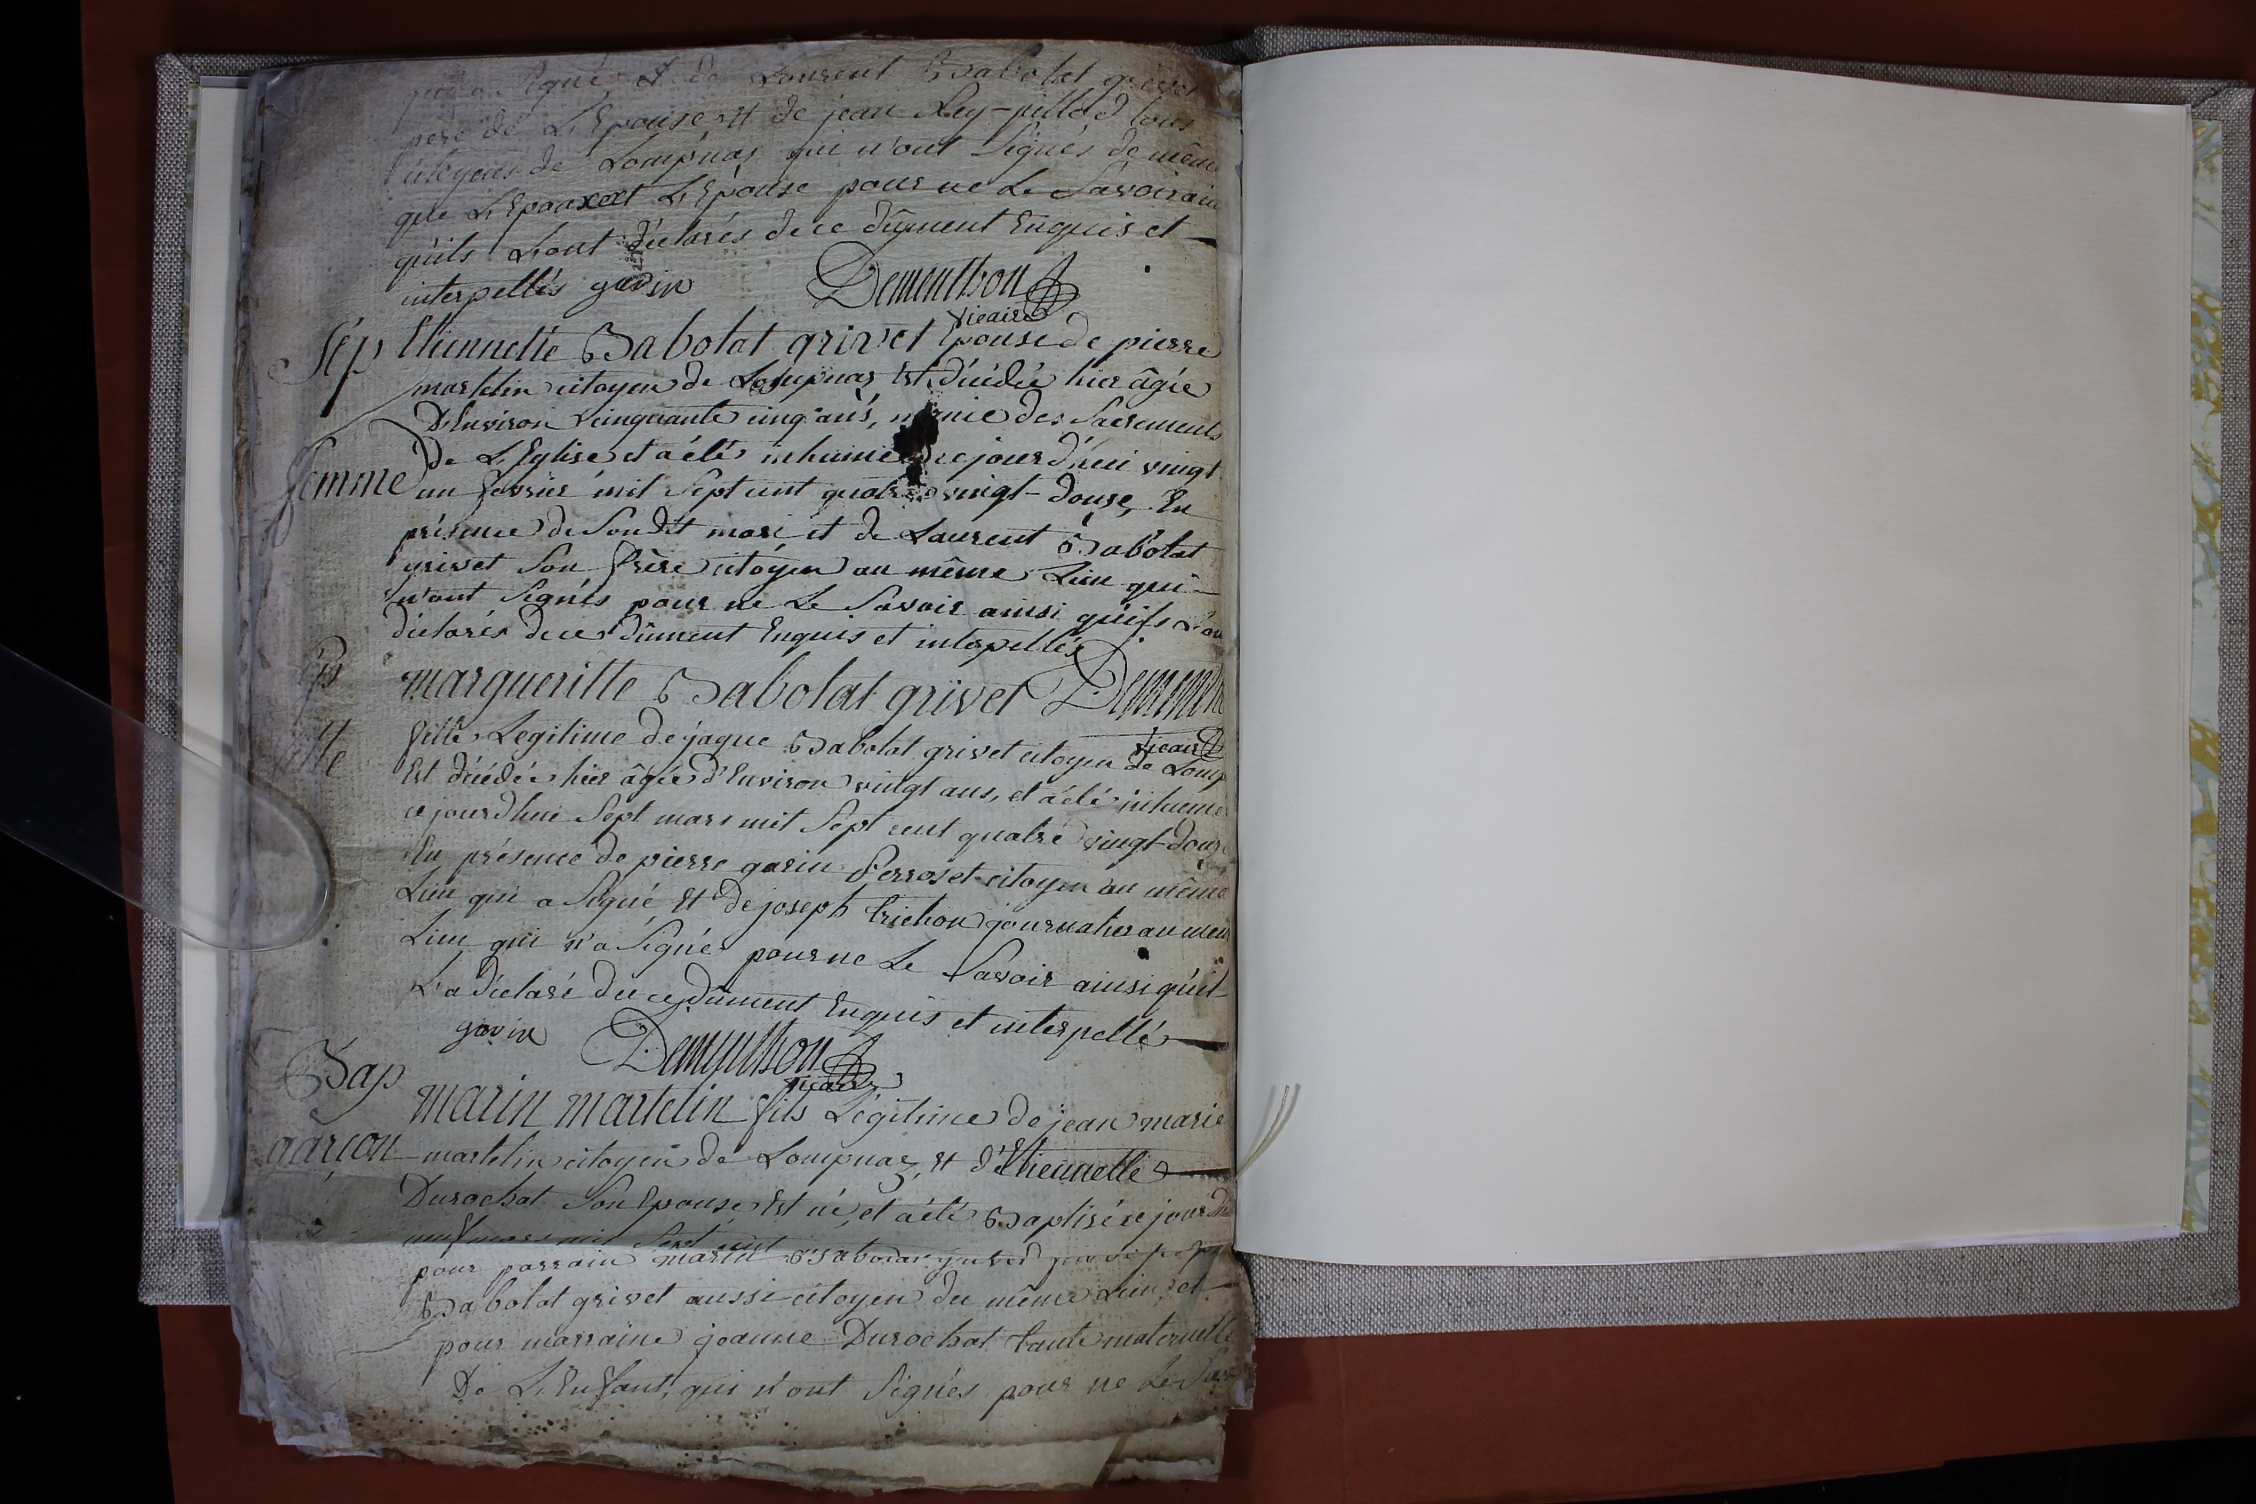 qui a signé, et de Laurent Babolat grivet
père de L'Epouse et de jean Rey-pillod tous
citoyens de Lompnas qui n'ont signés de même
que L'Epoux et L'Epouse pour ne Le Savoir ainsi
qu'ils L'ont déclarés de ce dûment Enquis et
interpellés garin Dementhon
vicaire
Sép Etiennette Babolat grivet Epouse de pierre
martelin citoyen de Lompnas Est décédée hier âgée
D'Environ cinquante cinq ans, munie des Sacrements
De L'Eglise et a été inhumée ce jourd'hui vingt
femme un fevrier mil Sept cent quatre vingt-douze, En
présence de Son dit mari et de Laurent Babolat
grivet Son frère citoyen au même Lieu qui
n'ont Signés pour ne Le Savoir ainsi qu'ils L'on
déclarés de ce dûment Enquis et interpellés
margueritte Babolat grivet Dementh
vicaire
fille Legitime de jaque Babolat grivet citoyen de Lomp
Est décédée hier âgée d'Environ vingt ans, et a été inhumée
ce jourdhui Sept mars mil Sept cent quatre vingt-douze
En présence de pierre garin Perroset citoyen au même
Lieu qui a Signé Et de joseph trichon journalier au mem
Lieu qui n'a Signé pour ne Le Savoir ainsi qu'il
L'a déclaré de ce dûment Enquis et interpellé
garin Dementhon
vicaire
Bap marin martelin fils Légitime de jean marie
garcon martelin citoyen de Lompnas, Et d'Etiennette
Durochat Son Epouse Est né, et a été Baptisé ce jourd
neuf mars mil Sept cent
pour parrain marin Babolat grivet
Babolat grivet aussi citoyen du même Lieu, et
pour marraine jeanne Durochat tante maternelle
De L'Enfant, qui n'ont Signés pour ne Le Sav